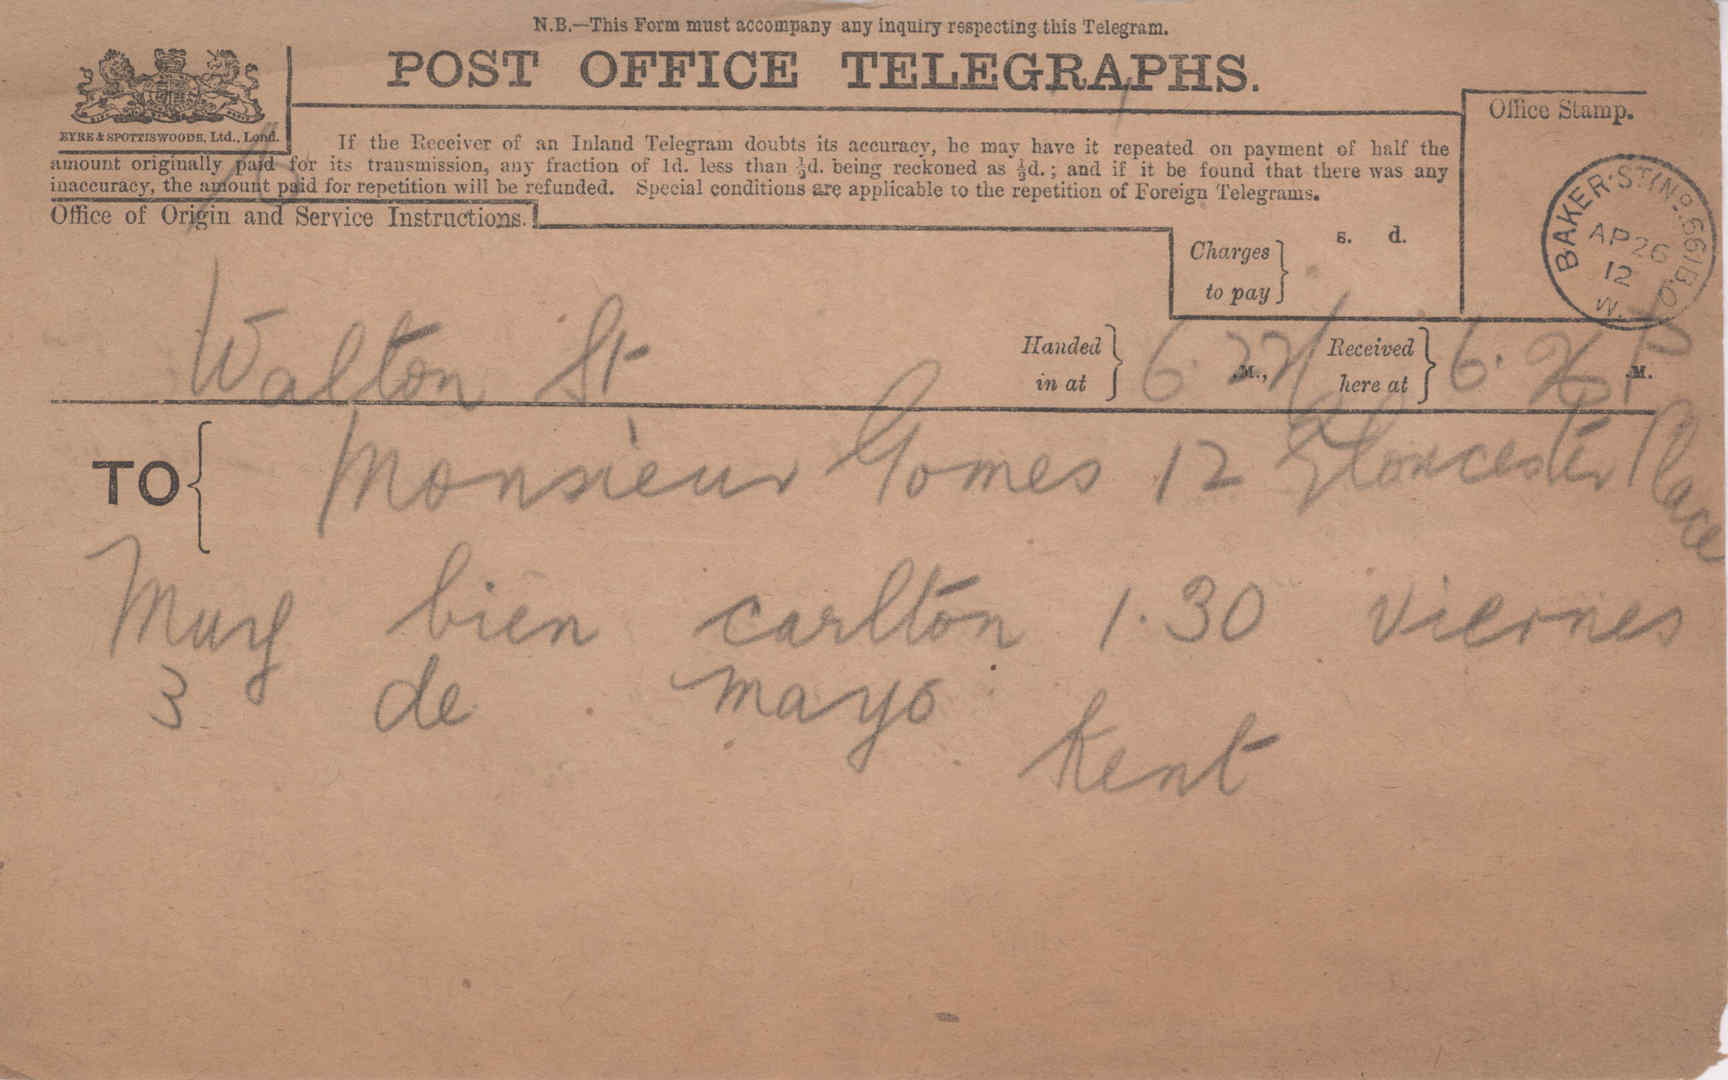 N.B.—This Form must accompany any inquiry respecting this Telegram.
POST OFFICE TELEGRAPHS.
EYRE & SPOTTISWOODE, Ltd., Lond.
If the Receiver of an Inland Telegram doubts its accuracy, he may have it repeated on payment of half the
amount originally paid for its transmission, any fraction of 1d. less than ½d. being reckoned as ½d.; and if it be found that there was any
inaccuracy, the amount paid for repetition will be refunded. Special conditions are applicable to the repetition of Foreign Telegrams.
Office of Origin and Service Instructions.
Office Stamp.
BAKER·ST(Nº.66)B.O
AP 26
12
W.
s. d.
Charges
to pay
Walton St
Handed
in at
6.22
.M.,
Received
here at
6.26 P
.M.
TO
Monsieur Gomes 12 Gloucester Place
Muy bien carlton 1.30 viernes
3 de mayo
Kent